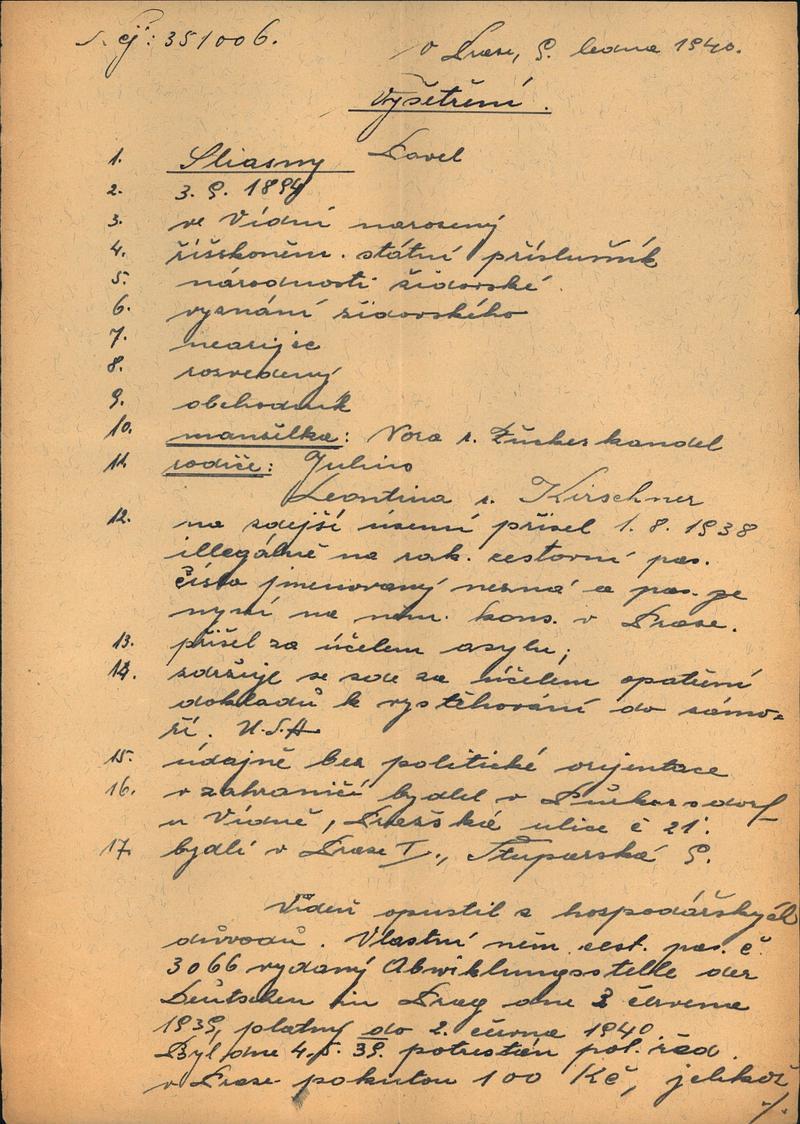 č. j: 351006.
v Praze, 9. ledna 1940.
Vyšetření.
1. Sliasny Pavel
2. 3. 9. 1894
3. ve Vídni narozený
4. říšskoněm. státní příslušník
5. národnosti židovské
6. vyznání židovského
7. nearijec
8. rozvedený
9. obchodník
10. manželka: Nora r. Zuckerkandel
11. rodiče: Julius
Leontina r. Kirschner
12. na zdejší území přišel 1. 8. 1938
illegálně na rak. cestovní pas.
číslo jmenovaný nezná a pas. je
nyní na něm. kons. v Praze.
13. přišel za účelem asylu;
14. zdržuje se zde za účelem opatření
dokladů k vystěhování do zámo-
ří. U.S.A.
15. údajně bez politické orientace
16. v zahraničí bydlel v Purkersdorf
u Vídně, Pražská ulice č 21.
17. bydlí v Praze I., Štuparská 9.
Vídeň opustil z hospodářských
důvodů. Vlastní něm. cest. pas. č.
3066 vydaný Abwiklungsstelle der
Deutschen in Prag dne 3 června
1939, platný do 2. června 1940.
Byl dne 4.5. 39. potrestán pol. řed.
v Praze pokutou 100 Kč, jelikož
./.